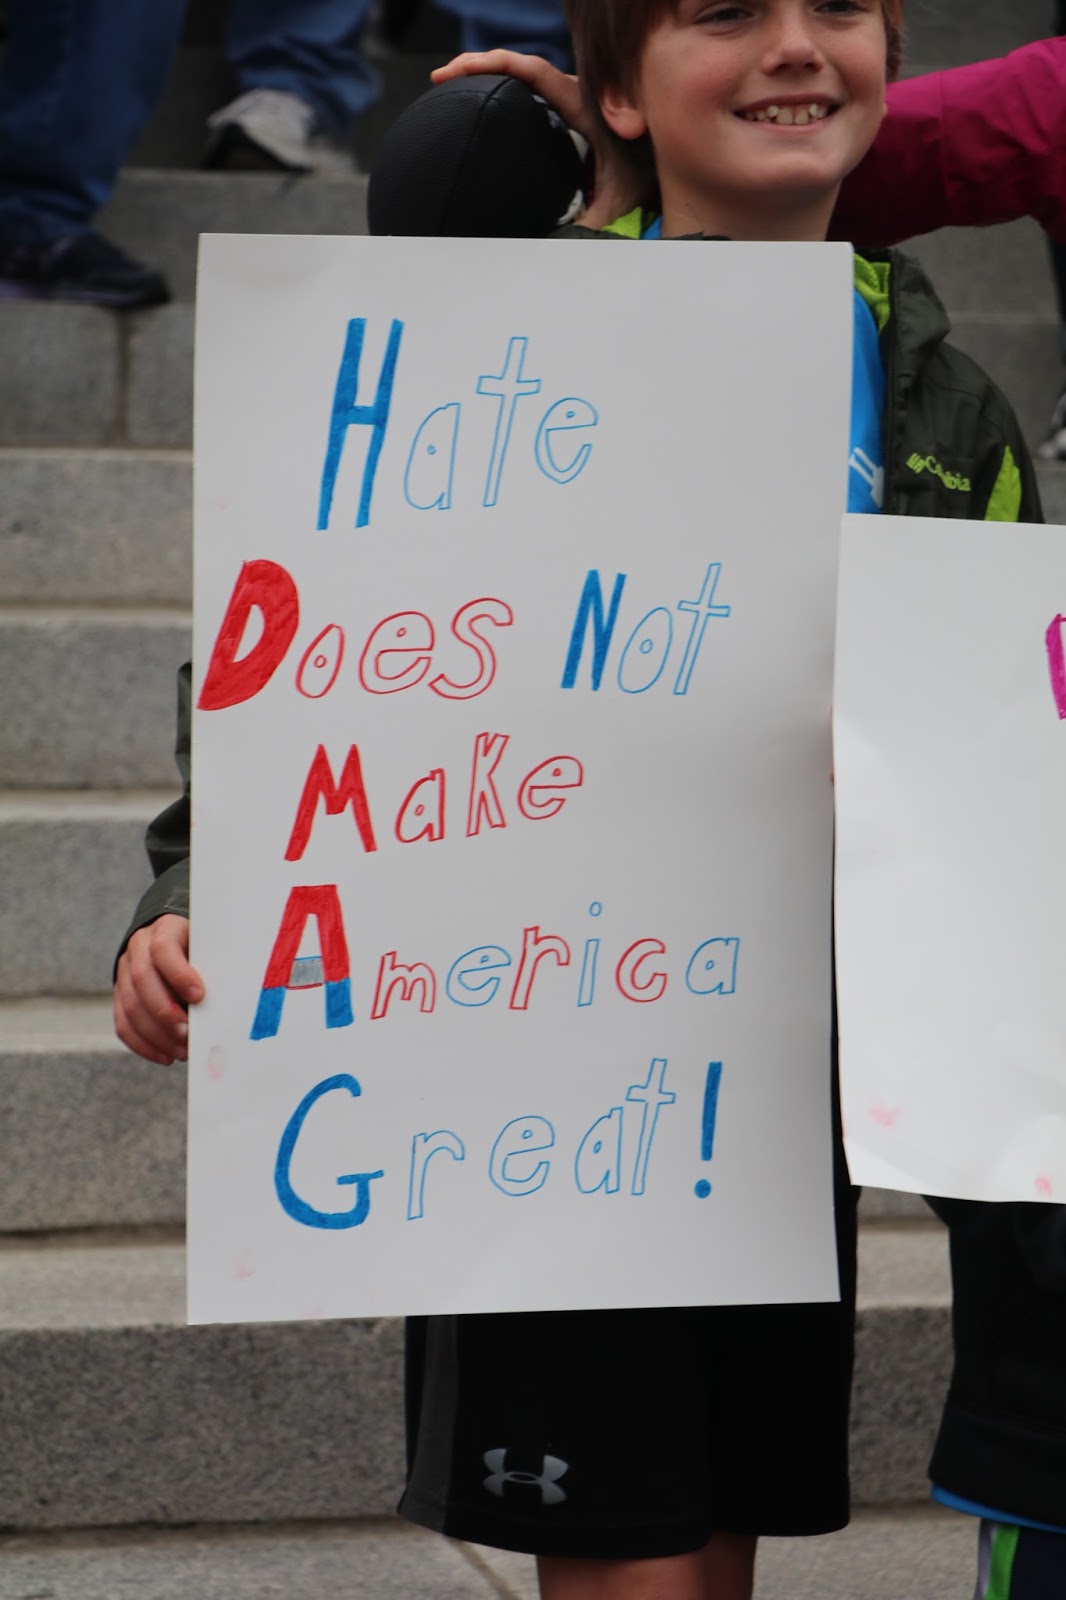 Hate
Does Not
Make
America
Great!
Columbia